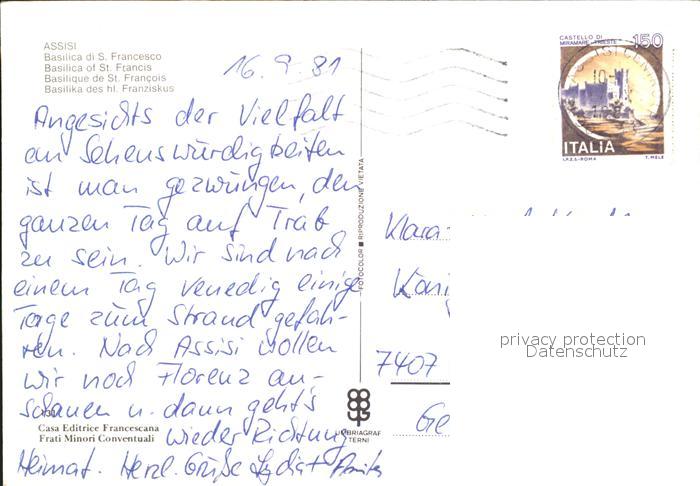 ASSISI
Basilica di S. Francesco
Basilica of St. Francis
Basilique de St. François
Basilika des hl. Franziskus
16.9.81
Angesichts der Vielfalt
an Sehenswürdigkeiten
ist man gezwungen, den
ganzen Tag auf Trab
zu sein. Wir sind nach
einem Tag Venedig einige
Tage zum Strand gefah-
ren. Nach Assisi wollen
wir noch Florenz an-
schauen u. dann geht's
wieder Richtung
Heimat. Herzl. Grüße
Casa Editrice Francescana
Frati Minori Conventuali
FOTOCOLOR ■ RIPRODUZIONE VIETATA
UMBRIAGRAF
TERNI
CASTELLO DI
MIRAMARE-TRIESTE 150
ITALIA
I.P.Z.S.-ROMA T. MELE
Klara-
7407
Ge
privacy protection
Datenschutz